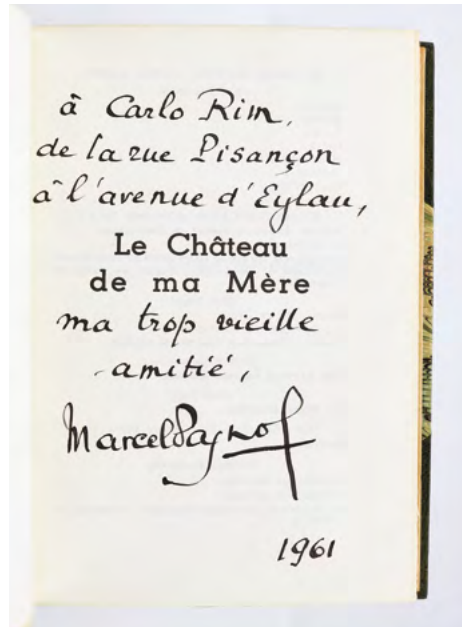 à Carlo Rim,
de la rue Pisançon
à l'avenue d'Eylau,
Le Château
de ma Mère
ma trop vieille
amitié,
Marcel Pagnol
1961